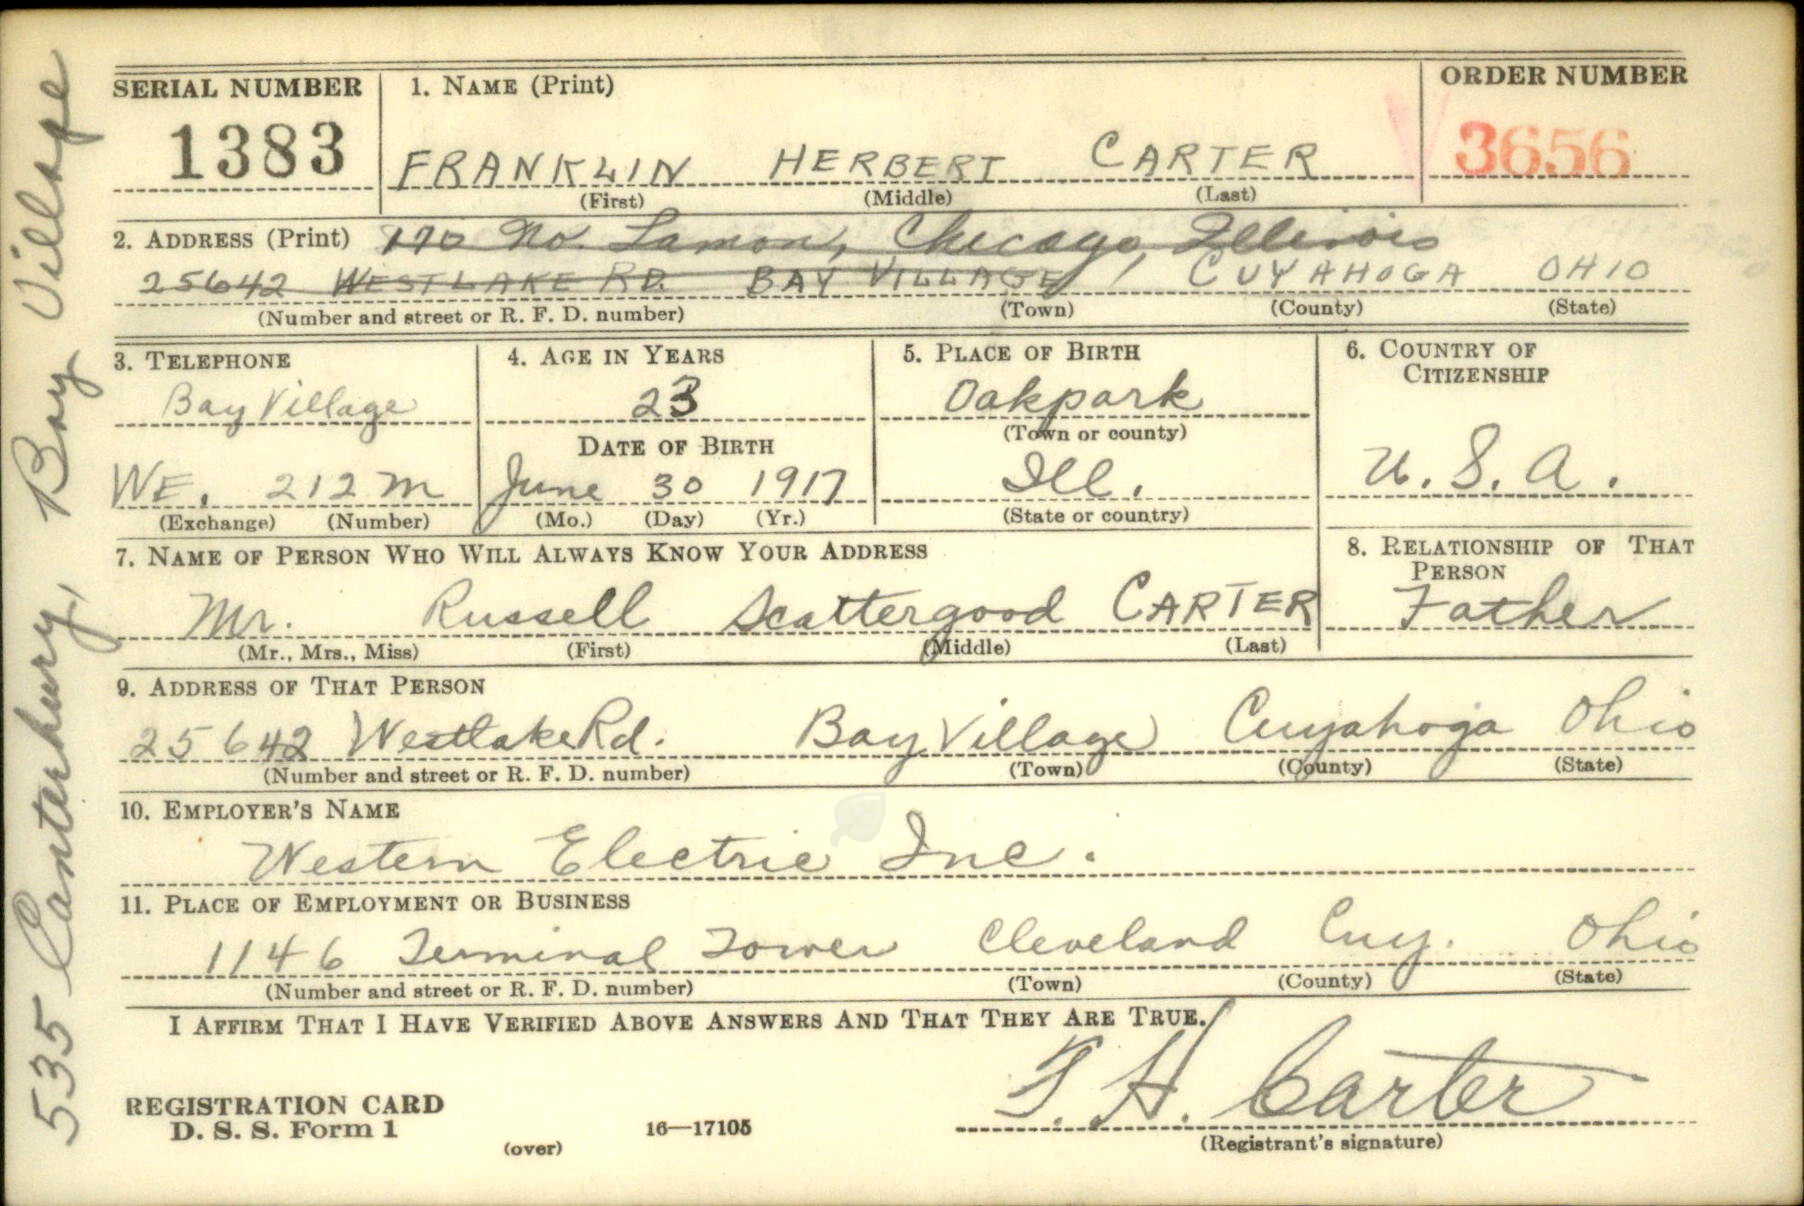 SERIAL NUMBER
1383
1. NAME (Print)
FRANKLIN HERBERT CARTER
(First) (Middle) (Last)
ORDER NUMBER
3656
2. ADDRESS (Print) 170 No. Lamon, Chicago, Illinois
25642 WESTLAKE RD. BAY VILLAGE, CUYAHOGA OHIO
(Number and street or R. F. D. number) (Town) (County) (State)
3. TELEPHONE
Bay Village
WE. 212M
(Exchange) (Number)
4. AGE IN YEARS
23
DATE OF BIRTH
June 30 1917
(Mo.) (Day) (Yr.)
5. PLACE OF BIRTH
Oakpark
(Town or county)
Ill.
(State or country)
6. COUNTRY OF
CITIZENSHIP
U. S. A.
7. NAME OF PERSON WHO WILL ALWAYS KNOW YOUR ADDRESS
Mr. Russell Scattergood CARTER
(Mr., Mrs., Miss) (First) (Middle) (Last)
8. RELATIONSHIP OF THAT
PERSON
Father
9. ADDRESS OF THAT PERSON
25642 Westlake Rd. Bay Village Cuyahoga Ohio
(Number and street or R. F. D. number) (Town) (County) (State)
10. EMPLOYER'S NAME
Western Electric Inc.
11. PLACE OF EMPLOYMENT OR BUSINESS
1146 Terminal Tower Cleveland Cuy. Ohio
(Number and street or R. F. D. number) (Town) (County) (State)
I AFFIRM THAT I HAVE VERIFIED ABOVE ANSWERS AND THAT THEY ARE TRUE.
F. H. Carter
(Registrant's signature)
REGISTRATION CARD
D. S. S. Form 1
(over)
16—17105
535 Canterbury, Bay Village